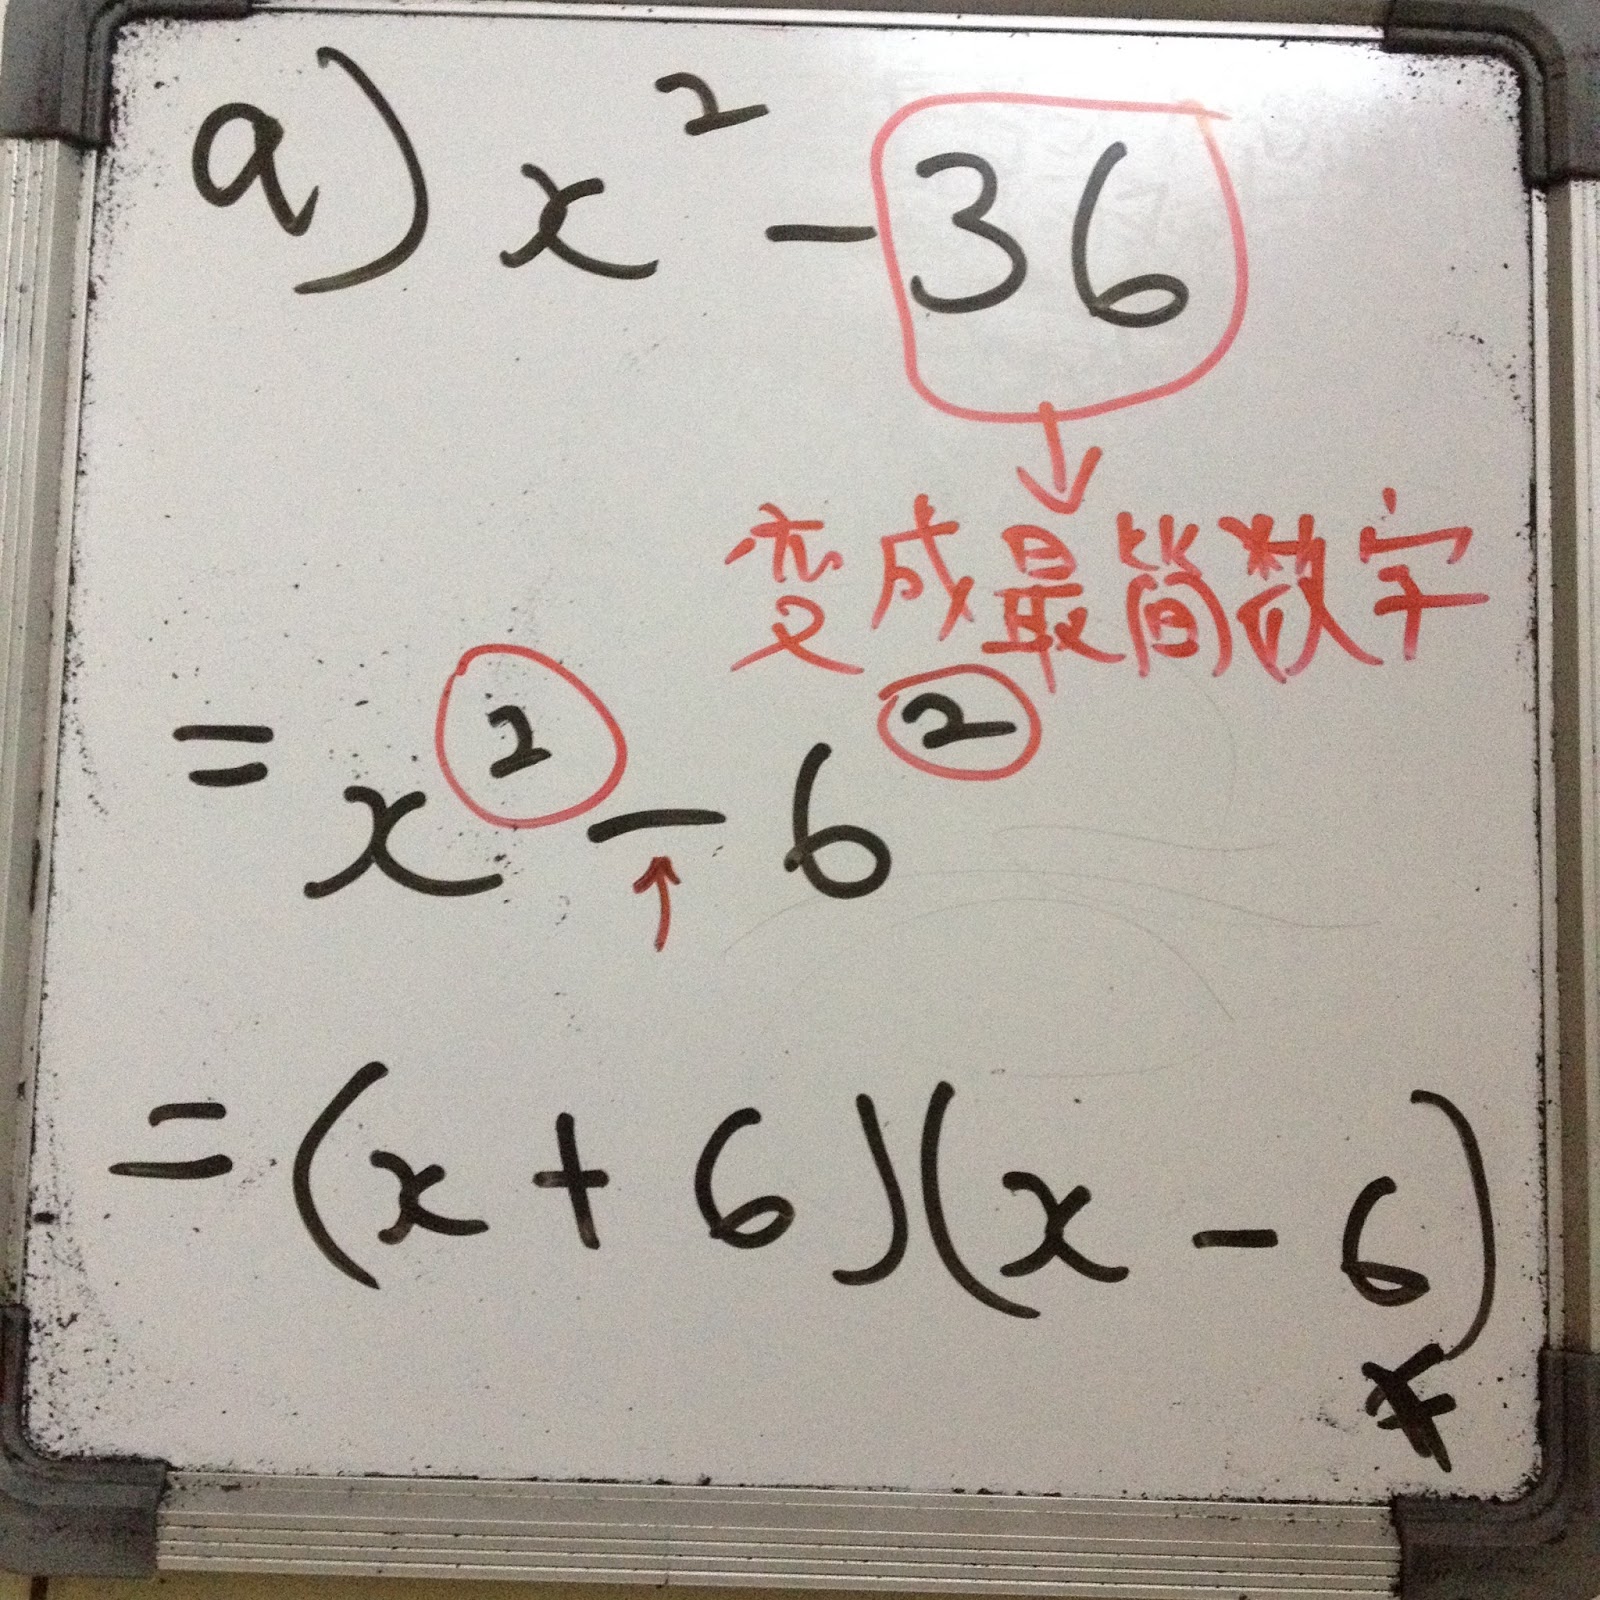 a) x² - 36
变成最简数字
= x² - 6²
= (x + 6)(x - 6)